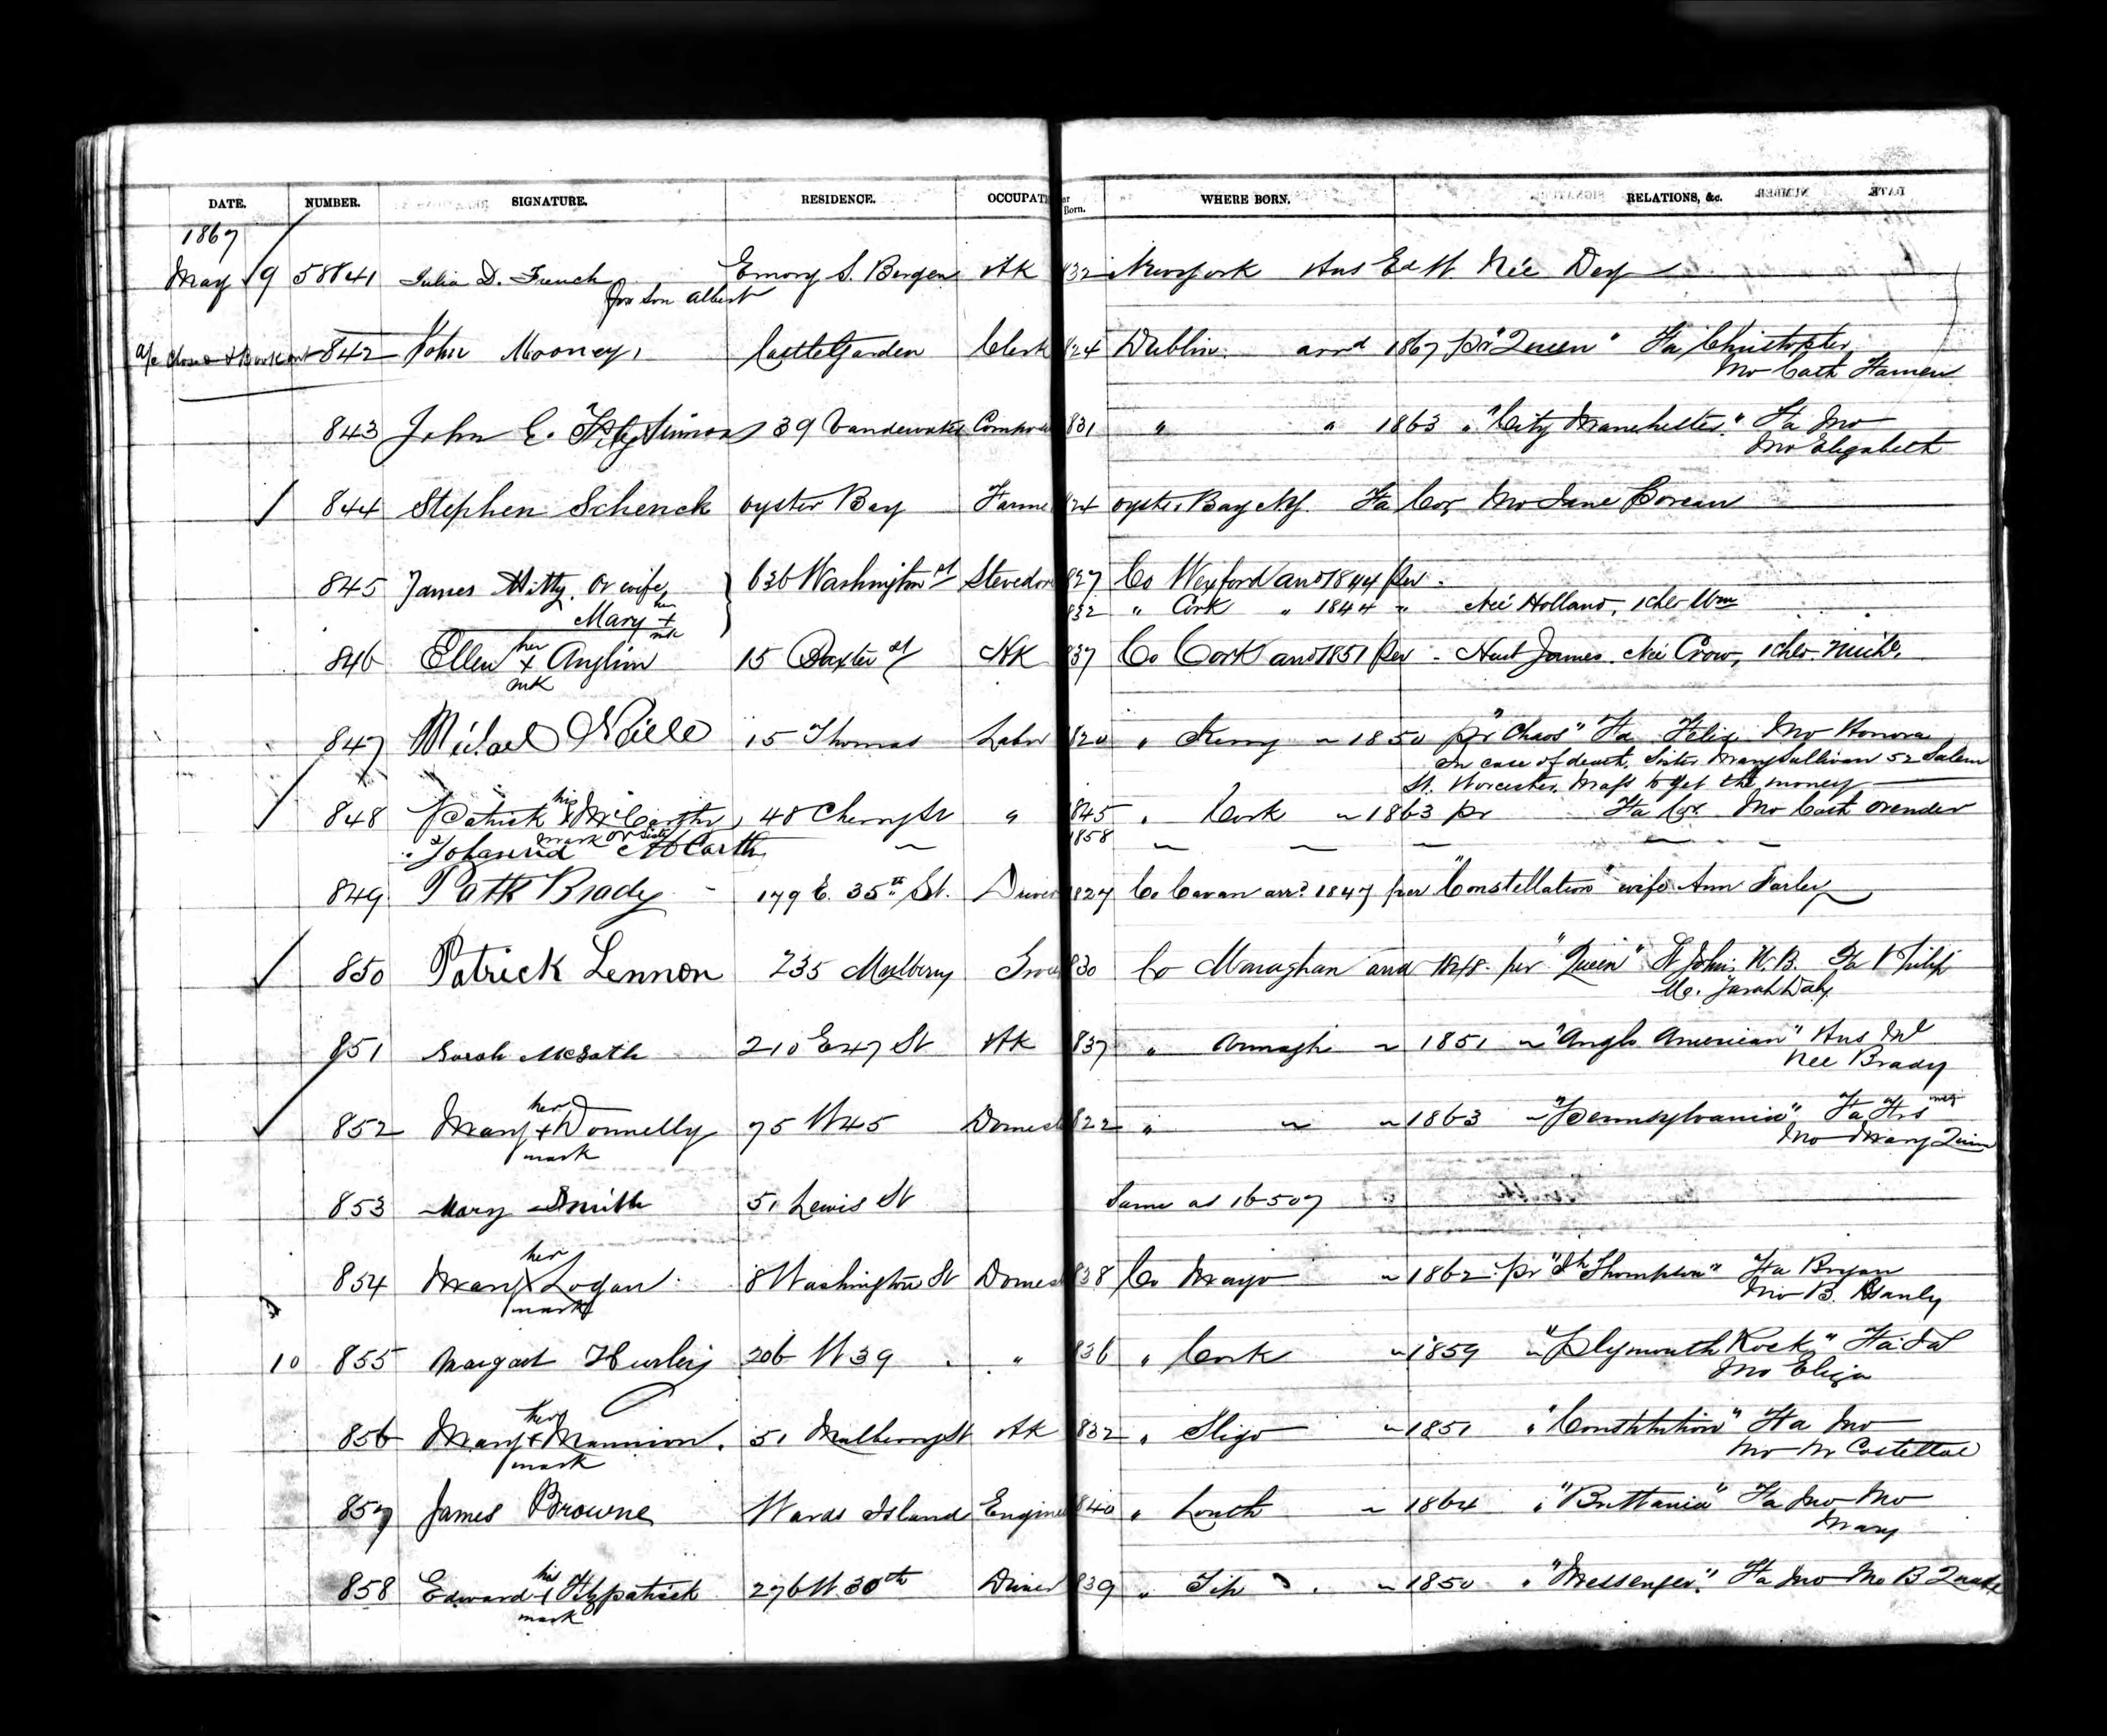 DATE. NUMBER. SIGNATURE. RESIDENCE. OCCUPATI Born. WHERE BORN. RELATIONS, &c.
1867
May 9 58841 Julia D. French Emory S. Bergen HK 832 New York Hus Ed W. Née Dey
for son Albert
a/c closed & Book out 842 John Mooney, Castle Garden Clerk 824 Dublin arrd 1867 pr "Queen" Fa Christopher
Mo Cath
843 John E. FitzSimons 39 Vandewater 831 " " 1863 " "City Manchester" Fa Jno
Mo Elizabeth
844 Stephen Schenck Oyster Bay Farme 824 Oyster Bay NY. Fa Cor Mo Jane
845 James Hitty. or wife 636 Washington st Stevedore 827 Co Wexford arrd 1844 per -
Mary + her mk 832 " Cork " 1844 " Née Holland, 1 ch Wm
846 Ellen her + mk Anglim 15 Baxter st HK 837 Co Cork arrd 1851 per - Husb James. Née Crow, 1 ch. Mich.
847 Michael Neille 15 Thomas Labor 820 " Kerry " 1850 pr "Chaos" Fa Felix Mo Honora
In case of death, Sister Mary Sullivan 52 Salem
St. Worcester, Mass to get the money
848 Patrick his mark McCarthy 48 Cherry St " 1845 " Cork " 1863 pr Fa Mo Cath
or Sister Johanna McCarth 1858
849 Patk Brady 179 E. 35th St. Driver 827 Co Cavan arrd 1847 per "Constellation" wife Ann Farley
850 Patrick Lennon 235 Mulberry 830 Co Monaghan arrd 1848 per "Queen" St Johns N.B. Fa Philip
Mo. Sarah Daly
851 Sarah McGath 210 E 47 St HK 837 " Armagh " 1851 " "Anglo American" Hus Ml
Nee Brady
852 Mary her + mark Donnelly 75 W 45 Domest 822 " " " 1863 " "Pennsylvania" Fa Hrs
Mo Mary Quinn
853 Mary Smith 51 Lewis St Same as 16507
854 Mary her + mark Logan 8 Washington St Domest 838 Co Mayo " 1862 pr Thompson" Fa Bryan
Mo B.
10 855 Margart Hurley 206 W 39 " 836 " Cork " 1859 " "Plymouth Rock" Fa
Mo Eliza
856 Mary her + mark Mannion. 51 Mulberry St HK 832 " Sligo " 1851 " "Constitution" Fa Jno
Mo M Costelloe
857 James Browne Wards Island Engine 840 " Louth " 1864 " "Brittania" Fa Jno Mo
Mary
858 Edward his + mark Fitzpatrick 276 W. 30th Driver 839 " Tip " 1850 " "Messenger" Fa Jno Mo B Quade